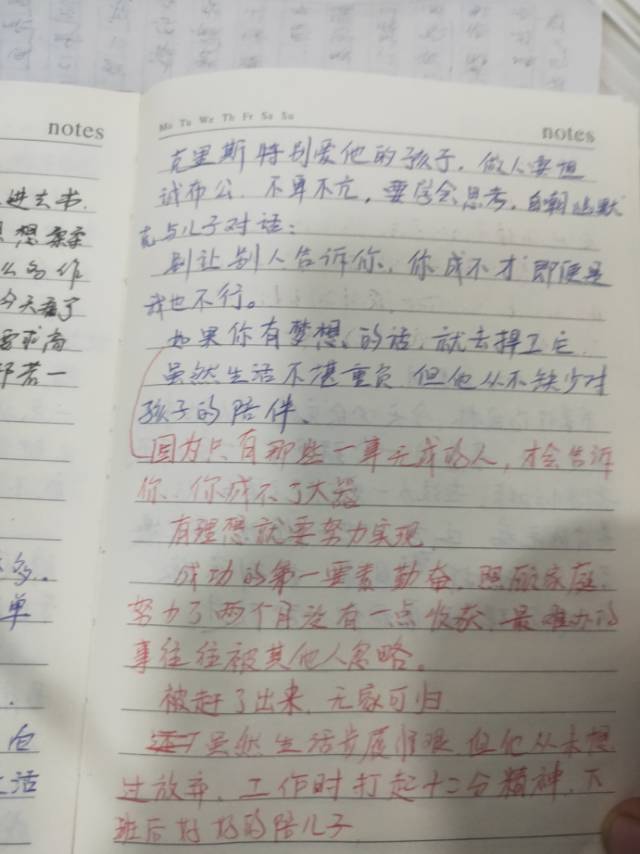 notes
Mo Tu We Th Fr Sa Su
notes
进去书.
想
么多作
今天看了
要求高
着一
多..
单
活
克里斯特别爱他的孩子,做人要坦
诚布公.不卑不亢,要学会思考,自嘲幽默
克与儿子对话:
别让别人告诉你,你成不才即便是
我也不行。
如果你有梦想、的话,就去捍卫它.
虽然生活不堪重负.但他从不缺少对
孩子的陪伴、
因为只有那些一事无成的人,才会告诉
你.你成不了大器
有理想就要努力实现.
成功的第一要素勤奋.照顾家庭.
努力了两个月没有一点收获.最难办的
事往往被其他人忽略。
被赶了出来.无家可归
虽然生活步履 但他从未想
过放弃.工作时打起十二分精神.下
班后好好的陪儿子